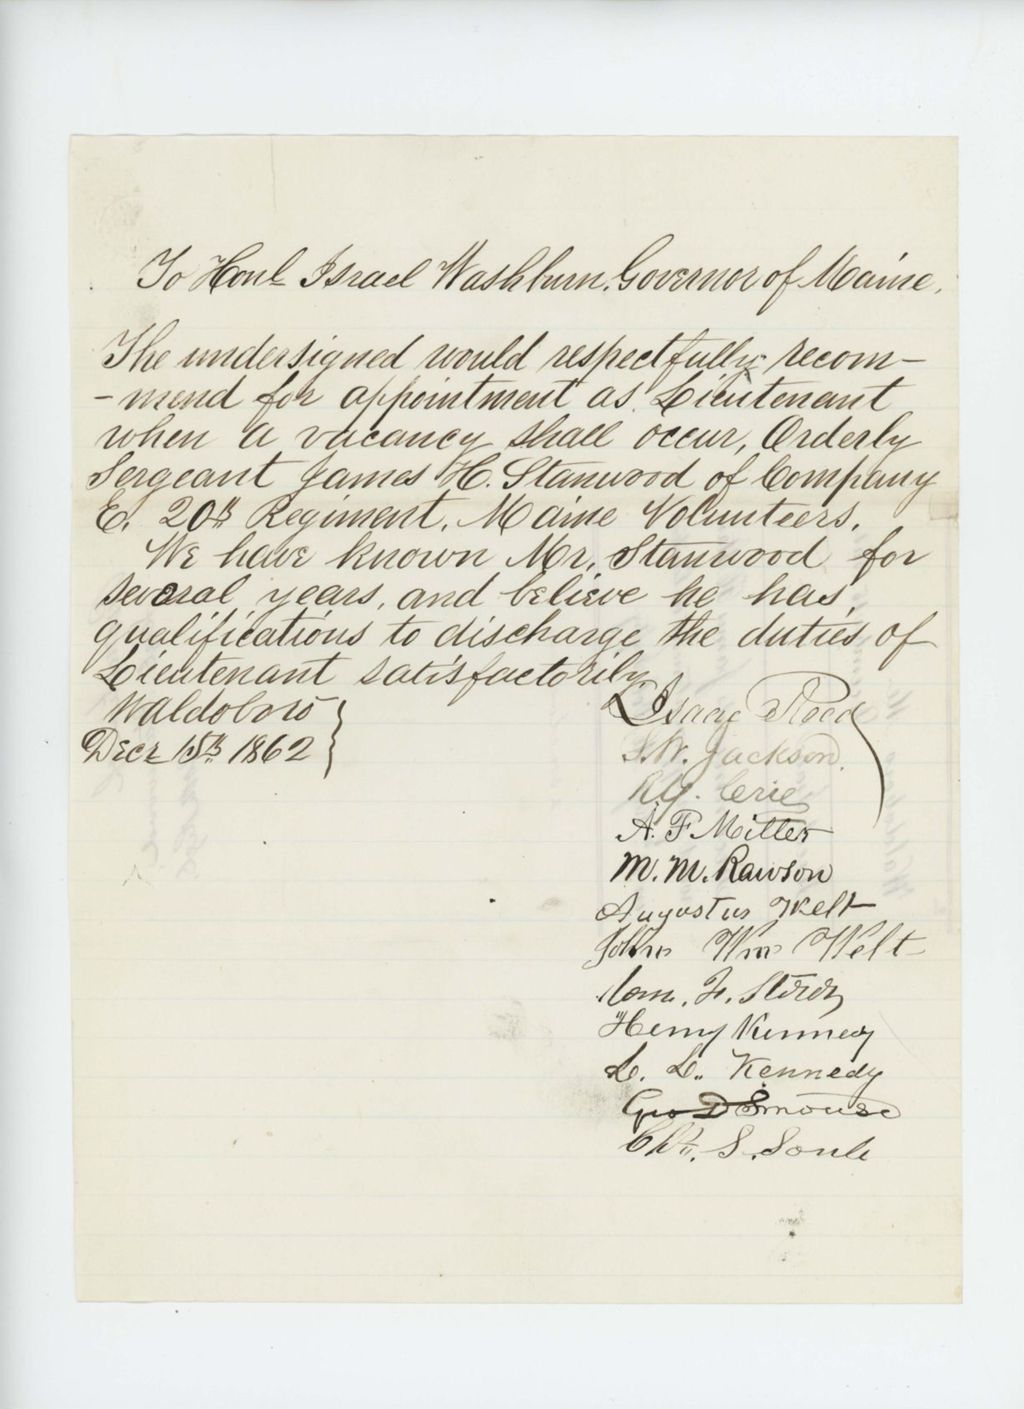 To Honl Israel Washburn, Governor of Maine.
The undersigned would respectfully recom-
-mend for appointment as Lieutenant
when a vacancy shall occur, Orderly
Sergeant James H. Stanwood of Company
E, 20th Regiment, Maine Volunteers.
We have known Mr. Stanwood for
several years, and believe he has
qualifications to discharge the duties of
Lieutenant satisfactorily
Waldoboro
Decr 15th 1862
Isaac Reed
S. W. Jackson.
R. G. Crie
A. F. Miller
M. M. Rawson
Augustus Welt
John Wm Welt
Henry Kennedy
L. L. Kennedy
Geo D Smouse
S. Soule